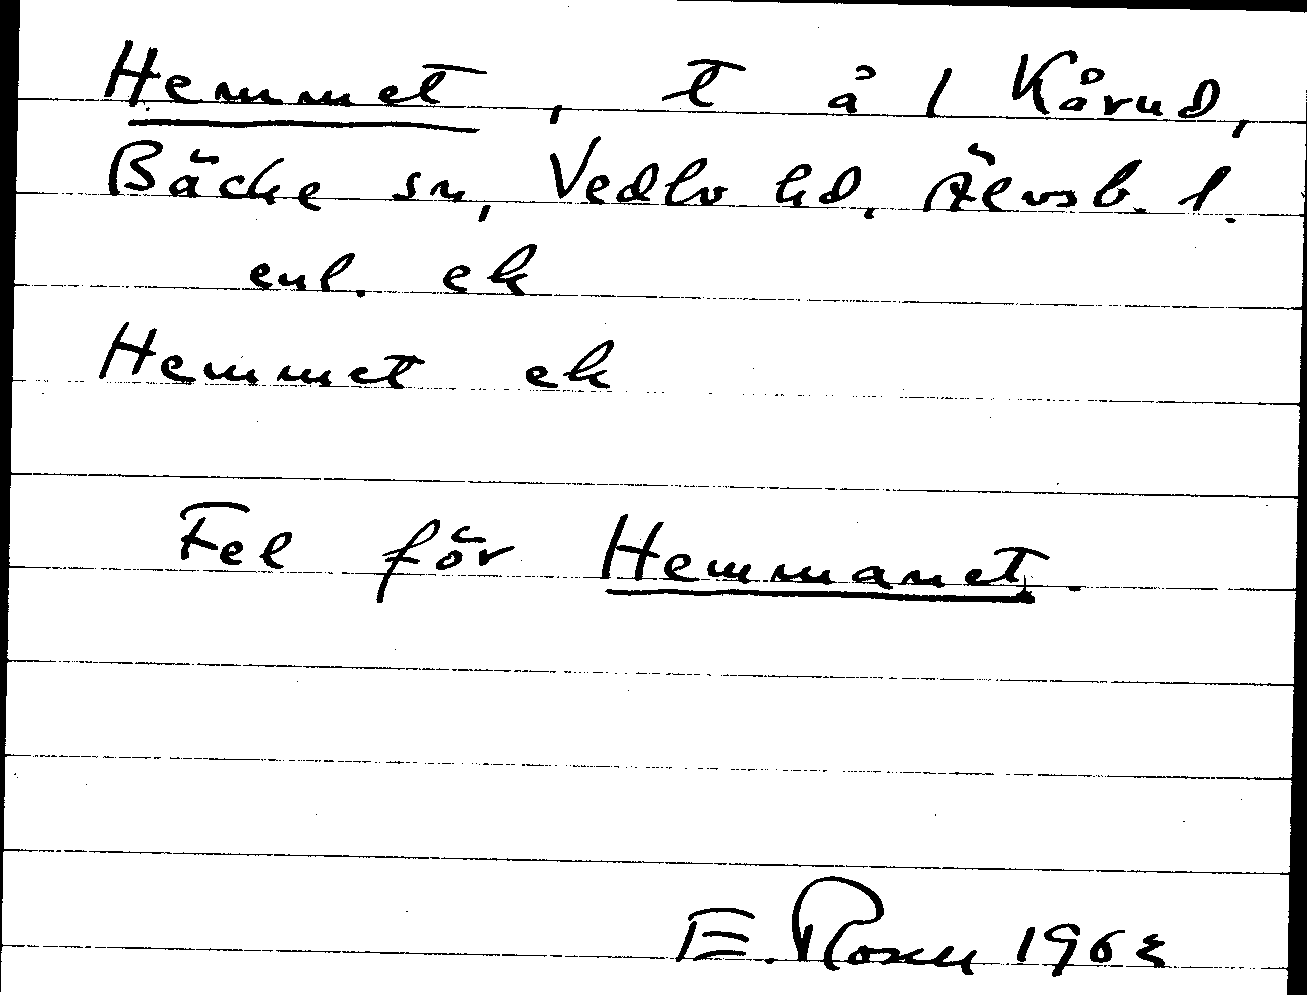 Hemmet, t å 1 Kårud,
Bäcke sn, Vedbo hd, Älvsb. l.
enl. ek
Hemmet ek
Fel för Hemmanet.
E. Rosell 1968